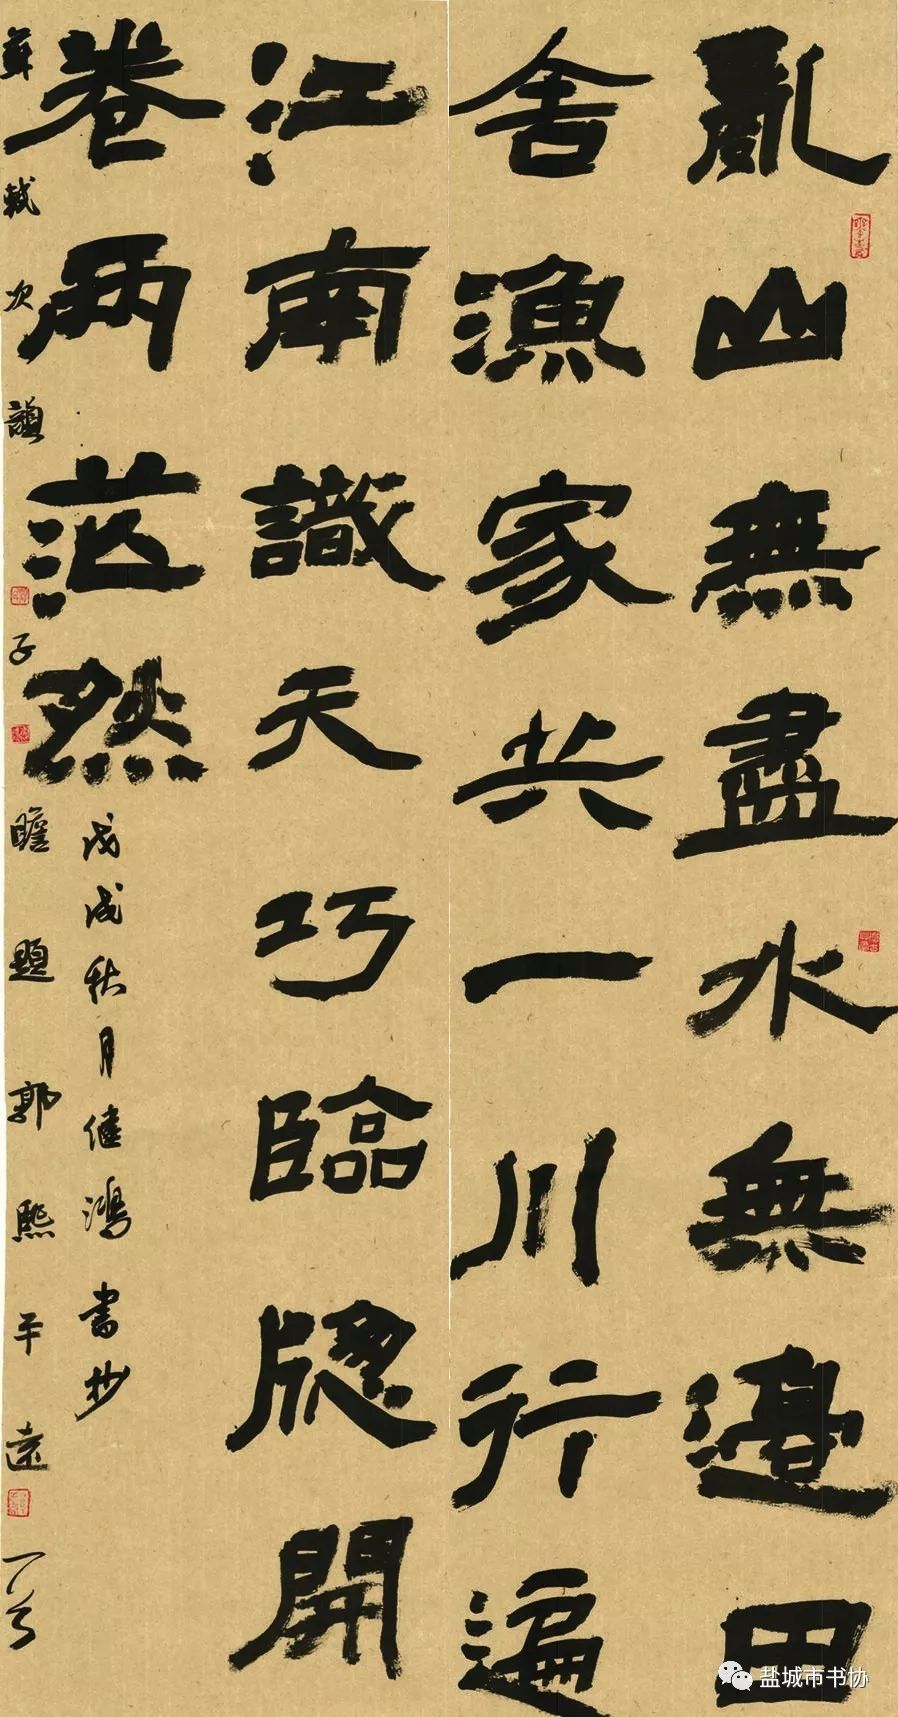 亂山無盡水無邊田
舍漁家共一川行遍
江南識天巧臨牕開
卷兩茫然
戊戌秋月健鴻書抄
蘇軾次韻子瞻題郭熙平遠一首
盐城市书协